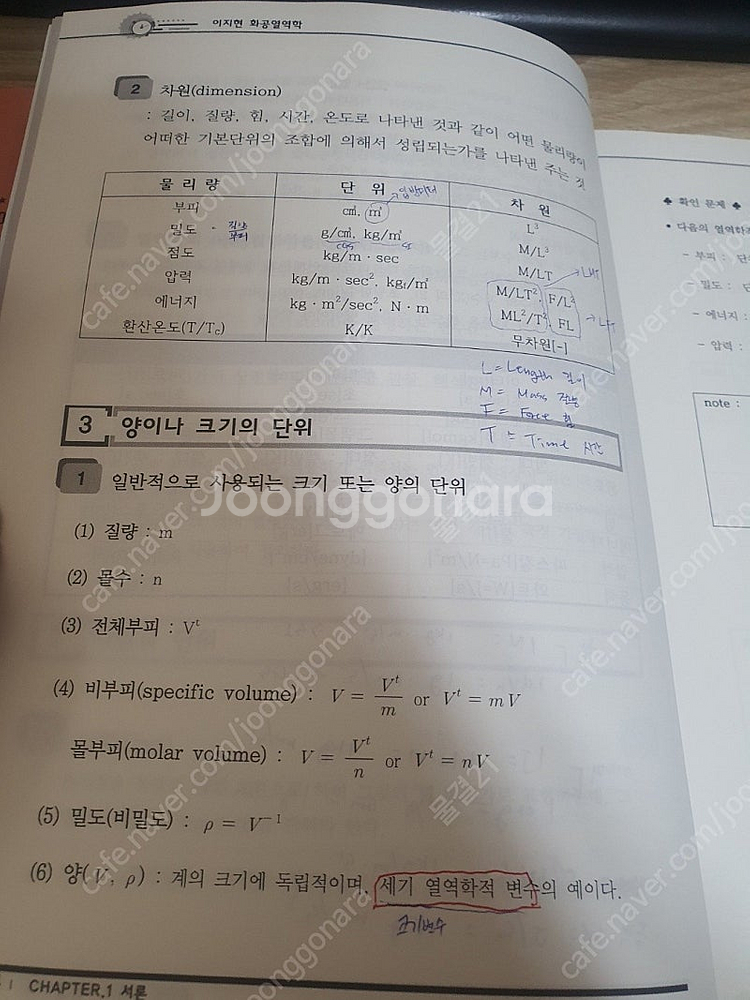 이지현 화공열역학
2 차원(dimension)
: 길이, 질량, 힘, 시간, 온도로 나타낸 것과 같이 어떤 물리량이
어떠한 기본단위의 조합에 의해서 성립되는가를 나타낸 주는 것
물 리 량 단 위 차 원
부피 cm³, m³ L³
밀도 g/cm³, kg/m³ M/L³
점도 kg/m · sec M/LT
압력 kg/m · sec², kgf/m² M/LT², F/L²
에너지 kg · m²/sec², N · m ML²/T², FL
환산온도(T/Tc) K/K 무차원[-]
질량
부피
CGS
L = Length 길이
M = Mass 질량
F = Force 힘
T = Time 시간
3 양이나 크기의 단위
1 일반적으로 사용되는 크기 또는 양의 단위
(1) 질량 : m
(2) 몰수 : n
(3) 전체부피 : Vᵗ
(4) 비부피(specific volume) : V = Vᵗ/m or Vᵗ = mV
몰부피(molar volume) : V = Vᵗ/n or Vᵗ = nV
(5) 밀도(비밀도) : ρ = V⁻¹
(6) 양(V, ρ) : 계의 크기에 독립적이며, 세기 열역학적 변수의 예이다.
크기변수
CHAPTER.1 서론
♣ 확인 문제 ♣
• 다음의 열역학
- 부피 : 단
- 밀도 : 단
- 에너지 :
- 압력 :
note :
Joonggonara
cafe.naver.com/joonggonara
물결21